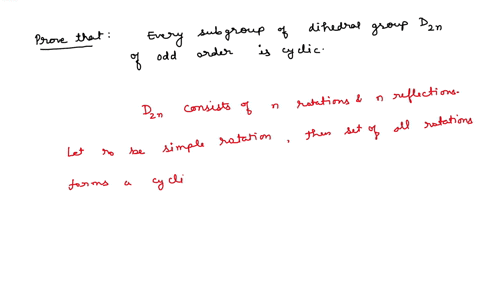 Prove that: Every subgroup of dihedral group D2n
of odd order is cyclic.
D2n consists of n rotations & n reflections.
Let r0 be simple rotation, then set of all rotations
forms a cycli